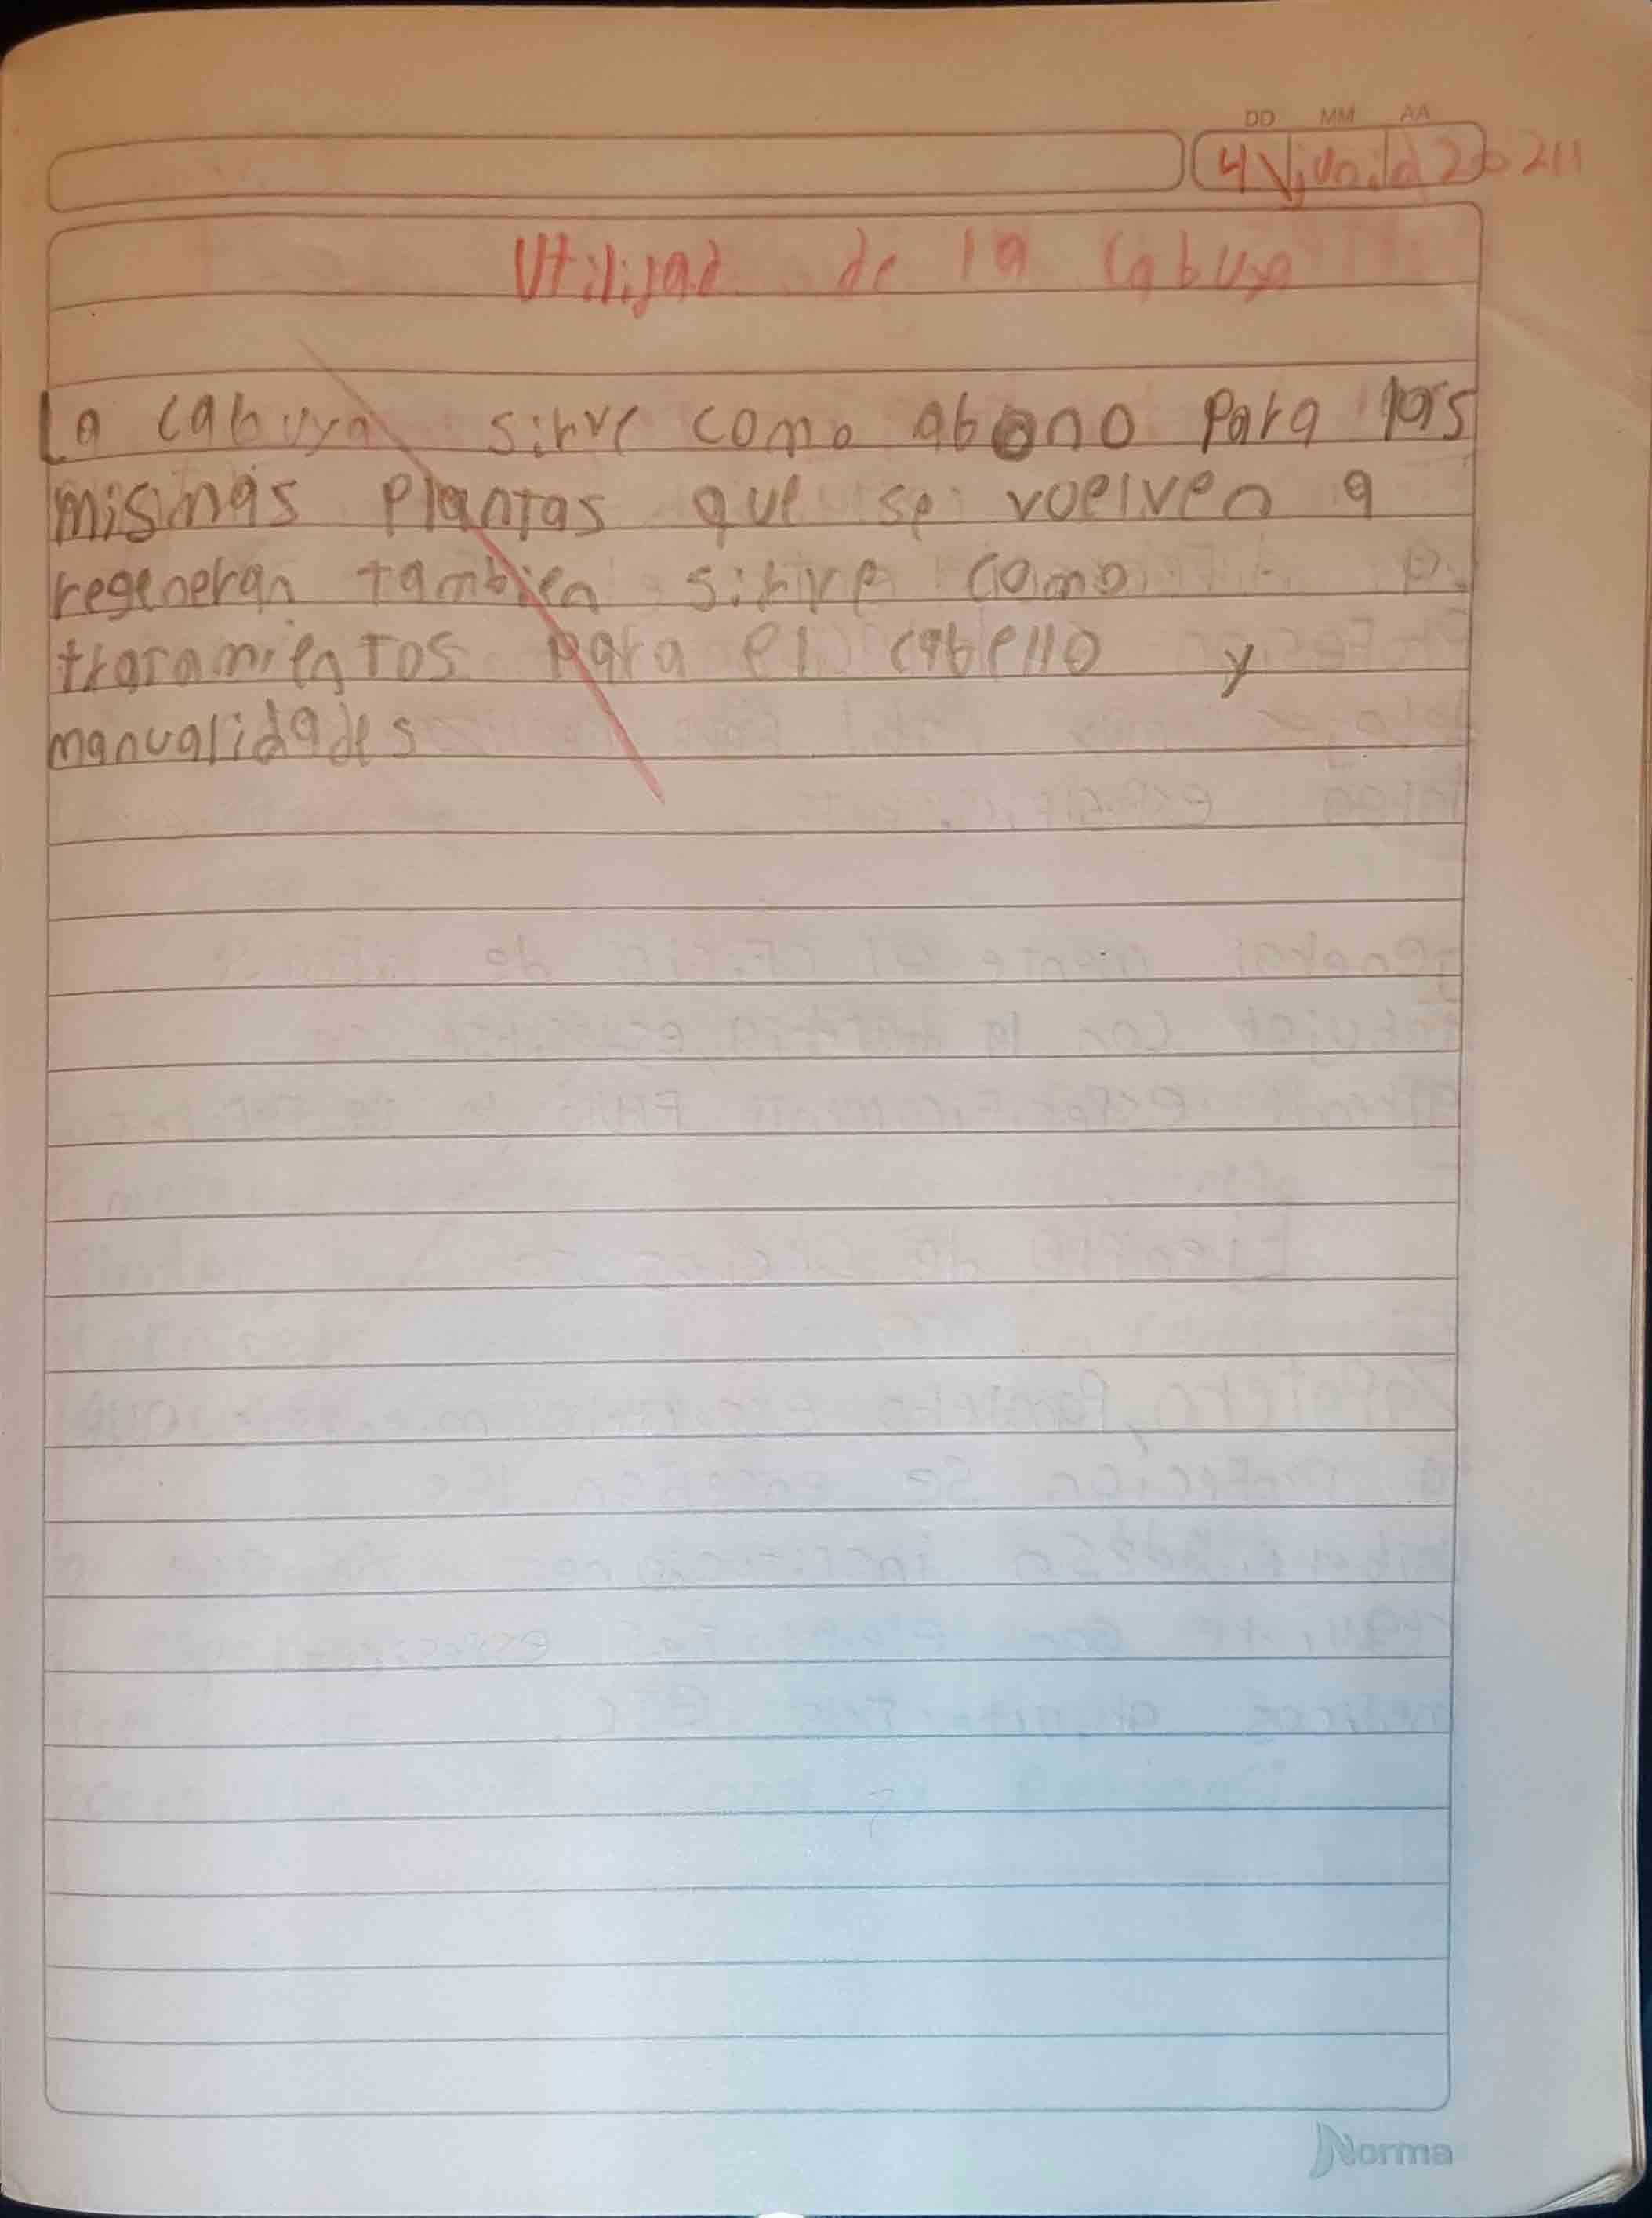 DD MM AA
4 junio 2021
Utilijad de la cabuya
La cabuya sirve como abono para las
mismas plantas que se vuelven a
regeneran tambien sirve como
tratamientos para el cabello y
manualidades
Norma